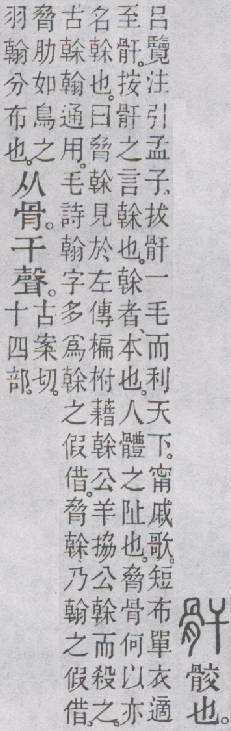 骭 骹也。
呂覽注引孟子。拔骭一毛而利天下。甯戚歌。短布單衣適
至骭。按骭之言榦也。榦者、本也。人體之阯也。脅骨何以亦
名榦也。曰脅榦見於左傳楄柎藉榦公羊拹公榦而殺之。
古榦翰通用。毛詩翰字多爲榦之假借。脅榦乃翰之假借。
脅肋如鳥之
羽翰分布也。
从骨。干聲。
古案切。
十四部。